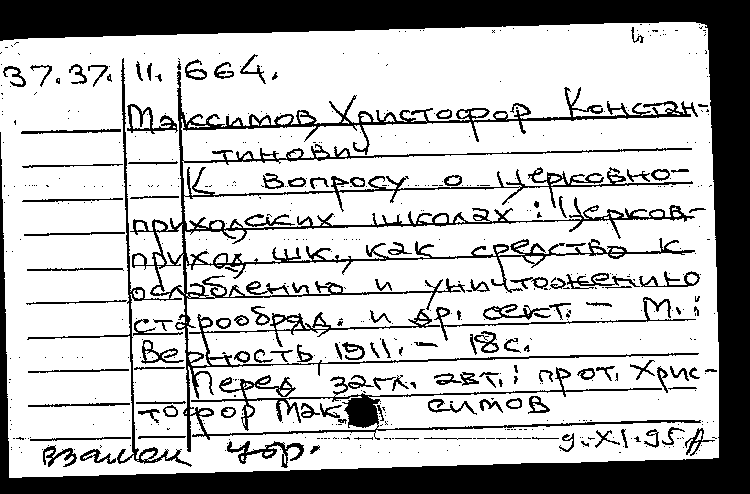 37.37. 11. 664.
Максимов, Христофор Констан-
тинович
К вопросу о церковно-
приходских школах : Церков.-
приход. шк., как средство к
ослаблению и уничтожению
старообряд. и др. сект. - М. :
Верность, 1911. - 18 с.
Перед загл. авт.: прот. Хрис-
тофор Максимов
взамен
9.XI.95